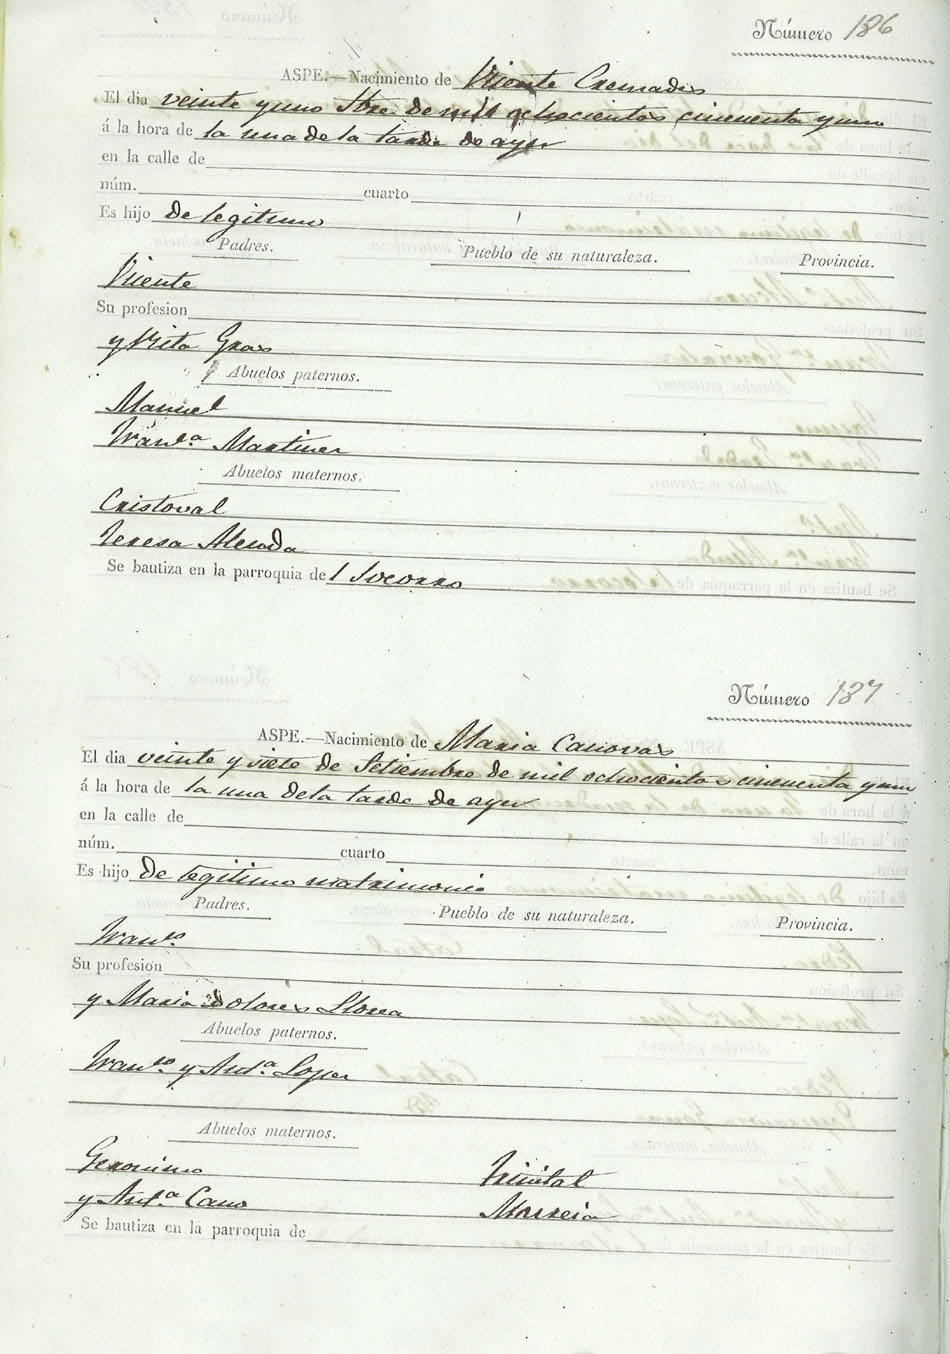 Número 186
ASPE.—Nacimiento de Vicente Cremades
El dia veinte y uno 7bre. de mil ochocientos cincuenta y uno
á la hora de la una de la tarde de ayer
en la calle de
núm. cuarto
Es hijo de legitimo
Padres. Pueblo de su naturaleza. Provincia.
Vicente
Su profesion
y Rita Gras
Abuelos paternos.
Manuel
Fran.ca Martinez
Abuelos maternos.
Cristoval
Teresa Alcada
Se bautiza en la parroquia de l Socorro
Número 187
ASPE.—Nacimiento de Maria Canovas
El dia veinte y siete de Setiembre de mil ochocientos cincuenta y uno
á la hora de la una dela tarde de ayer
en la calle de
núm. cuarto
Es hijo de legitimo matrimonio
Padres. Pueblo de su naturaleza. Provincia.
Fran.co
Su profesion
y Maria Dolores Llorca
Abuelos paternos.
Fran.co y Ant.a Lopez
Abuelos maternos.
Geronimo
y Ant.a Cano Murcia
Se bautiza en la parroquia de